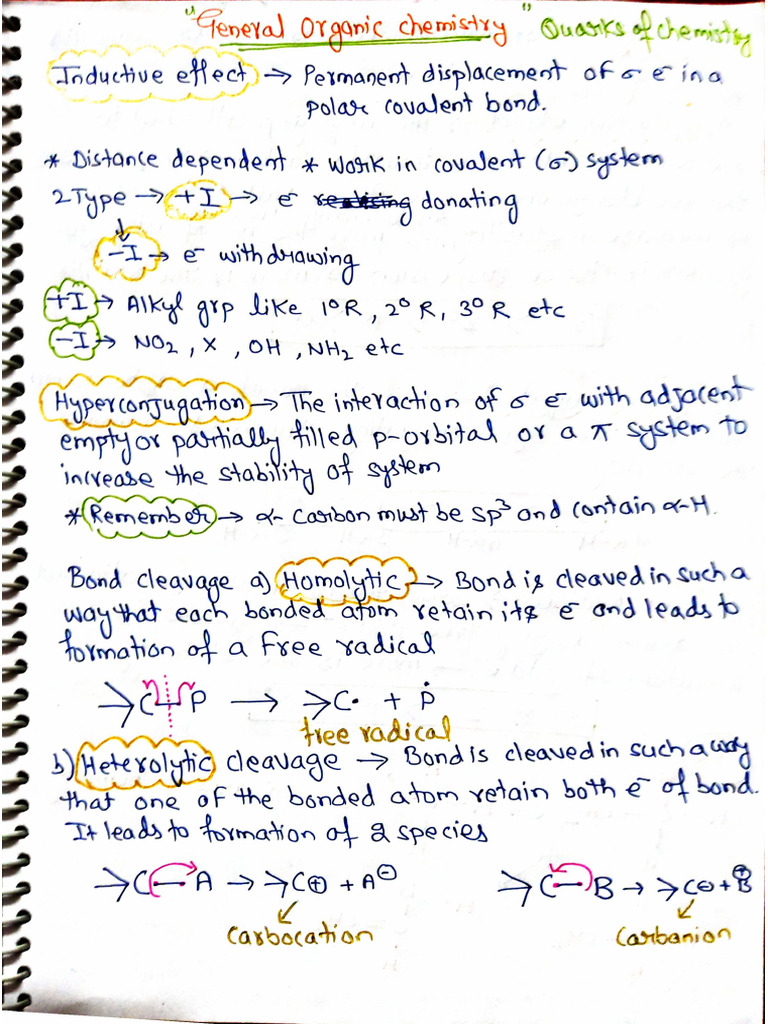 "General Organic chemistry" Quarks of chemistry
Inductive effect → Permanent displacement of σ e⁻ in a
polar covalent bond.
* Distance dependent * work in covalent (σ) system
2 Type → +I → e⁻ donating
-I → e⁻ withdrawing
+I → Alkyl grp like 1° R, 2° R, 3° R etc
-I → NO₂, X, OH, NH₂ etc
Hyperconjugation → The interaction of σ e⁻ with adjacent
empty or partially filled p-orbital or a π system to
increase the stability of system
* Remember → α-Carbon must be sp³ and contain α-H.
Bond cleavage a) Homolytic → Bond is cleaved in such a
way that each bonded atom retain its e⁻ and leads to
formation of a free radical
C-P → C• + Ṗ
free radical
b) Heterolytic cleavage → Bond is cleaved in such a way
that one of the bonded atom retain both e⁻ of bond.
It leads to formation of 2 species
C-A → C⊕ + A⊖ C-B → C⊖ + B⊕
Carbocation Carbanion